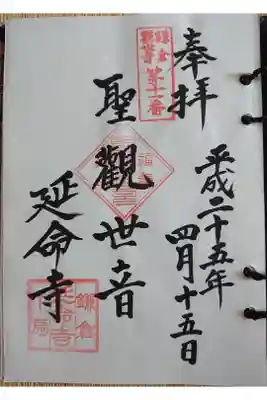 奉拝
平成二十五年
四月十五日
鎌倉
観音
第十一番
聖觀世音
延命寺
鎌倉